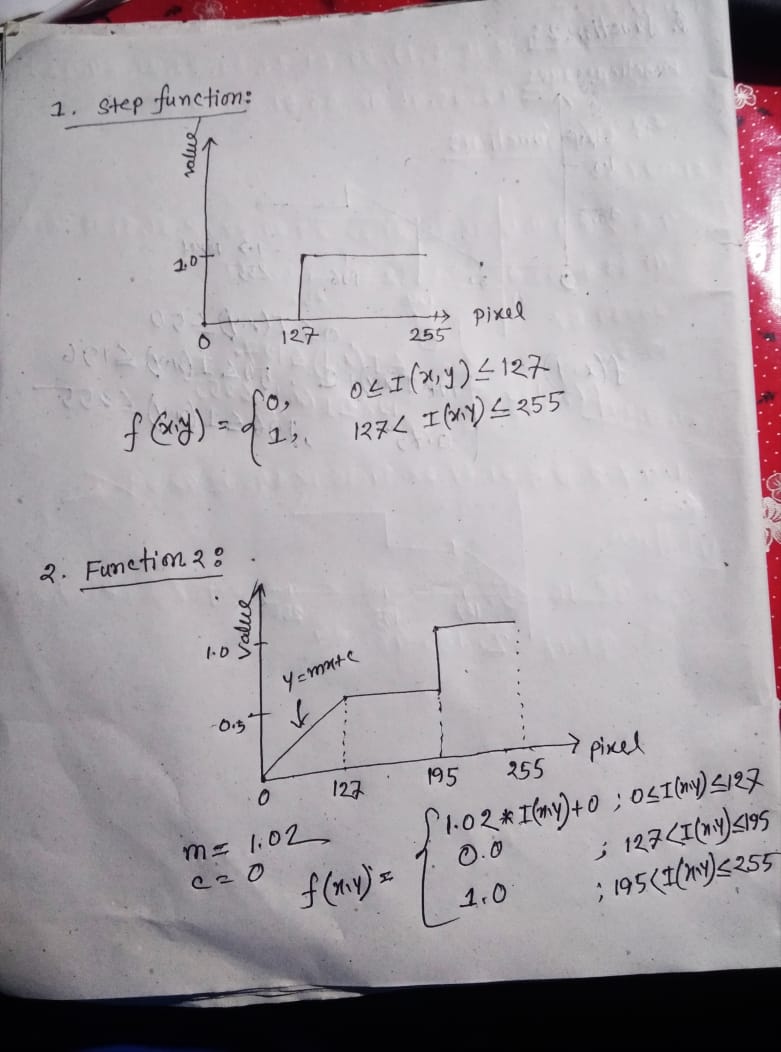 1. Step function:
value
1.0
0 127 255 pixel
f(x,y) = { 0, 0 ≤ I(x,y) ≤ 127
1; 127 < I(x,y) ≤ 255
2. Function 2:
value
1.0
y=mx+c
0.5
0 127 195 255 pixel
m = 1.02
c = 0
f(x,y) = { 1.02 * I(x,y)+0 ; 0≤I(x,y)≤127
0.0 ; 127<I(x,y)≤195
1.0 ; 195<I(x,y)≤255